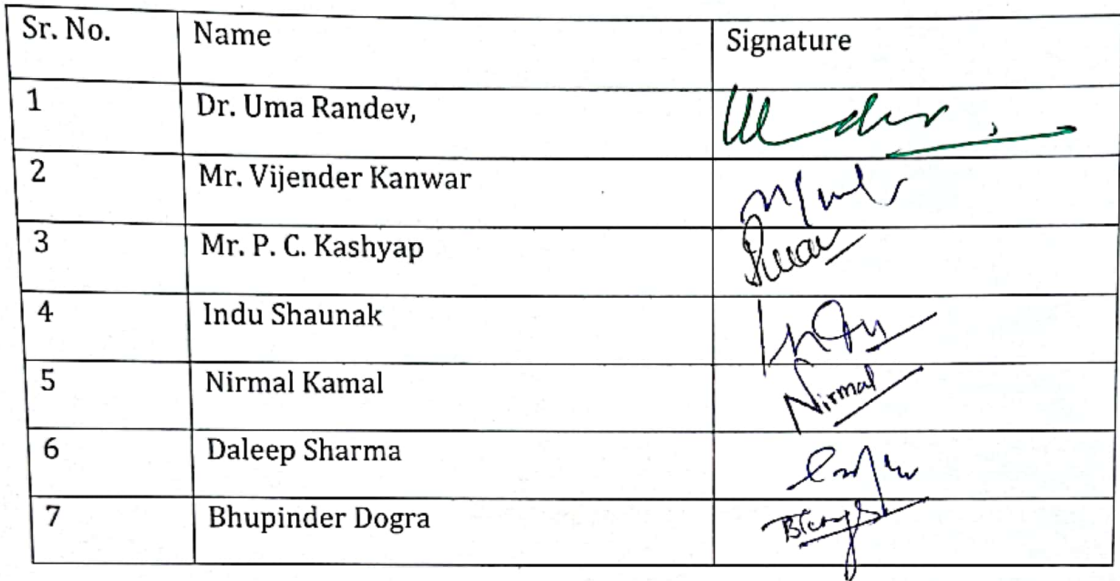 Sr. No. Name Signature
1 Dr. Uma Randev,
2 Mr. Vijender Kanwar
3 Mr. P. C. Kashyap
4 Indu Shaunak Indu
5 Nirmal Kamal Nirmal
6 Daleep Sharma
7 Bhupinder Dogra